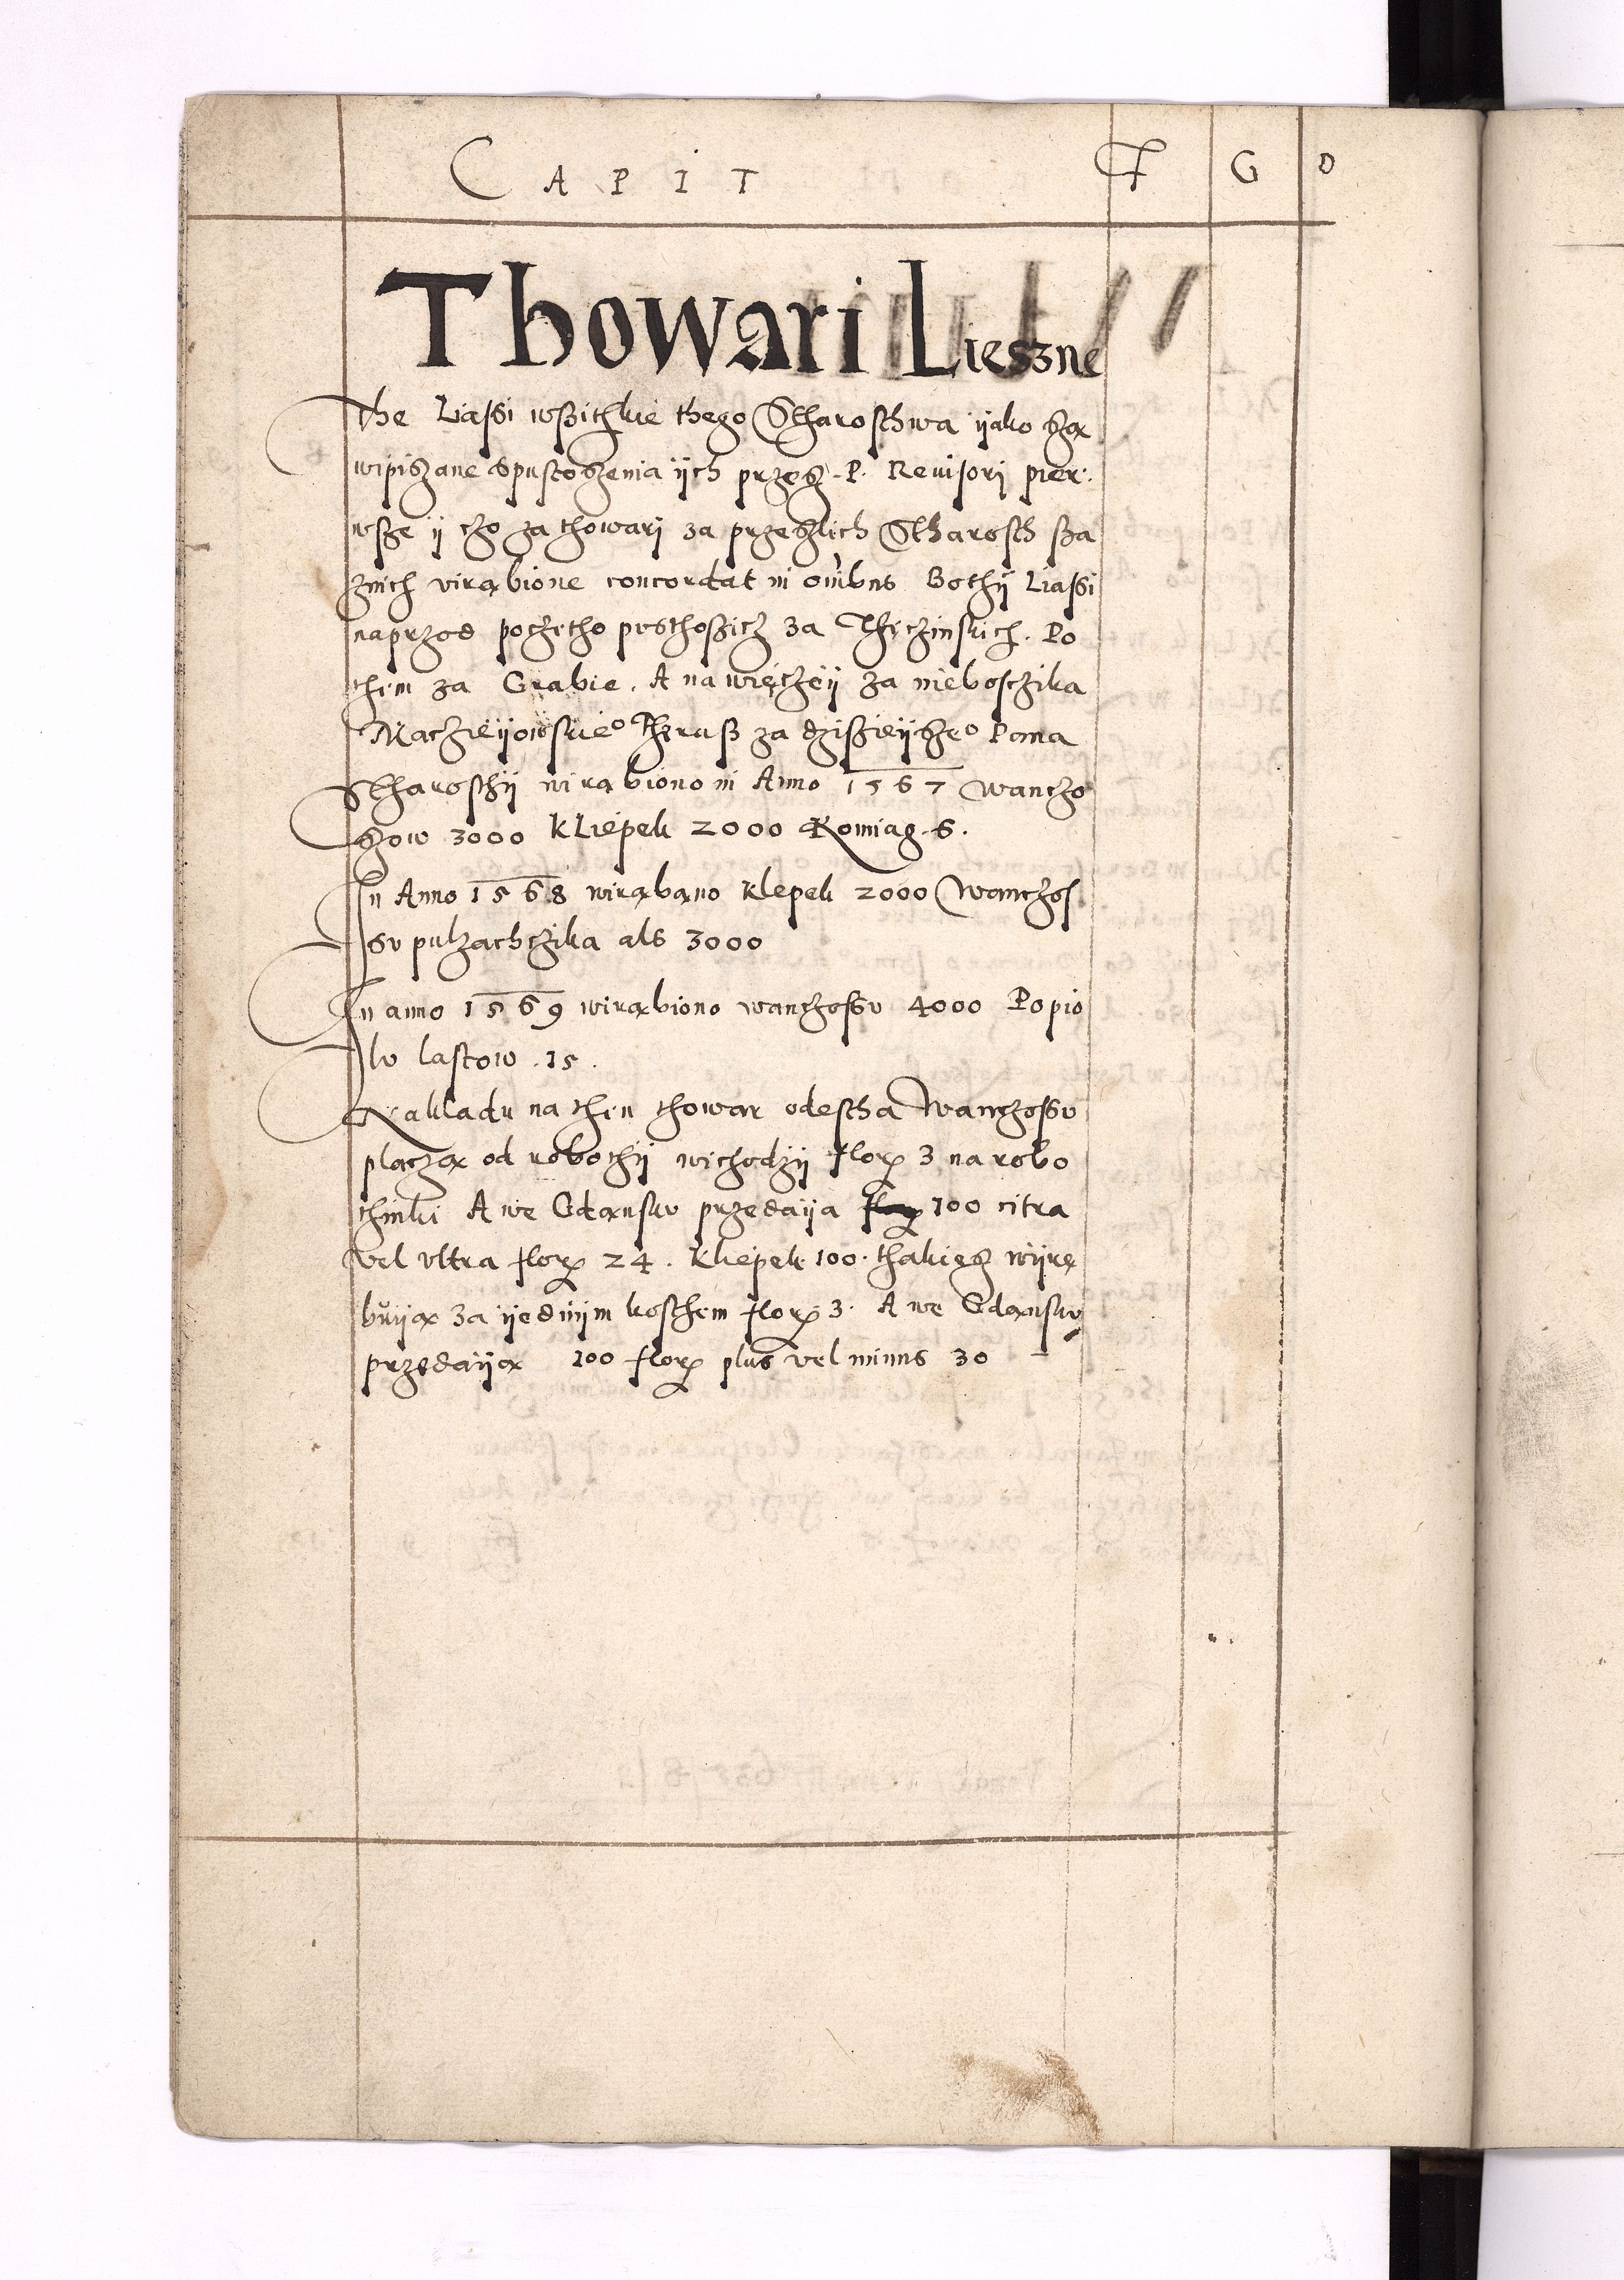 CAPIT F G D
Thowari Lieszne
The Liassi wssitzkie thego Stharosthwa ijako sza
wipiszane spustoszenia ijch przesz .P. Reuisori pier:
wsze ij czo za thowarj za przeszlich Stharosth sza
znich virabione concordat in omibus Bo thij Liassi
naprzod poczetho pusthossicz za Thęczinskich. Po
them za Grabie. A nawięczeij za nieboszczika
Macziejowskieo Theraß za dzissieijszeo Pana
Stharosthij wirabiono in Anno 1567 wanczo
szow 3000 Kliepek 2000 Komiag .6.
In Anno 1568 wirabano klepek 2000 Wanczos
su pulzachczika als 3000
In anno 1569 wirabiono wanczossu 4000 Popio
lu lastow .15.
Nakladu na then thowar odestha Wanczossu
placza od robothij wichodzij flor 3 na robo
thniki A we Gdansku przedaija 100 citra
vel vltra flor 24. kliepek 100. thakiesz wijrę
buija za ijednijm kosthem flor 3. A we Gdansku
przedaija 100 flor plus vel minus 30